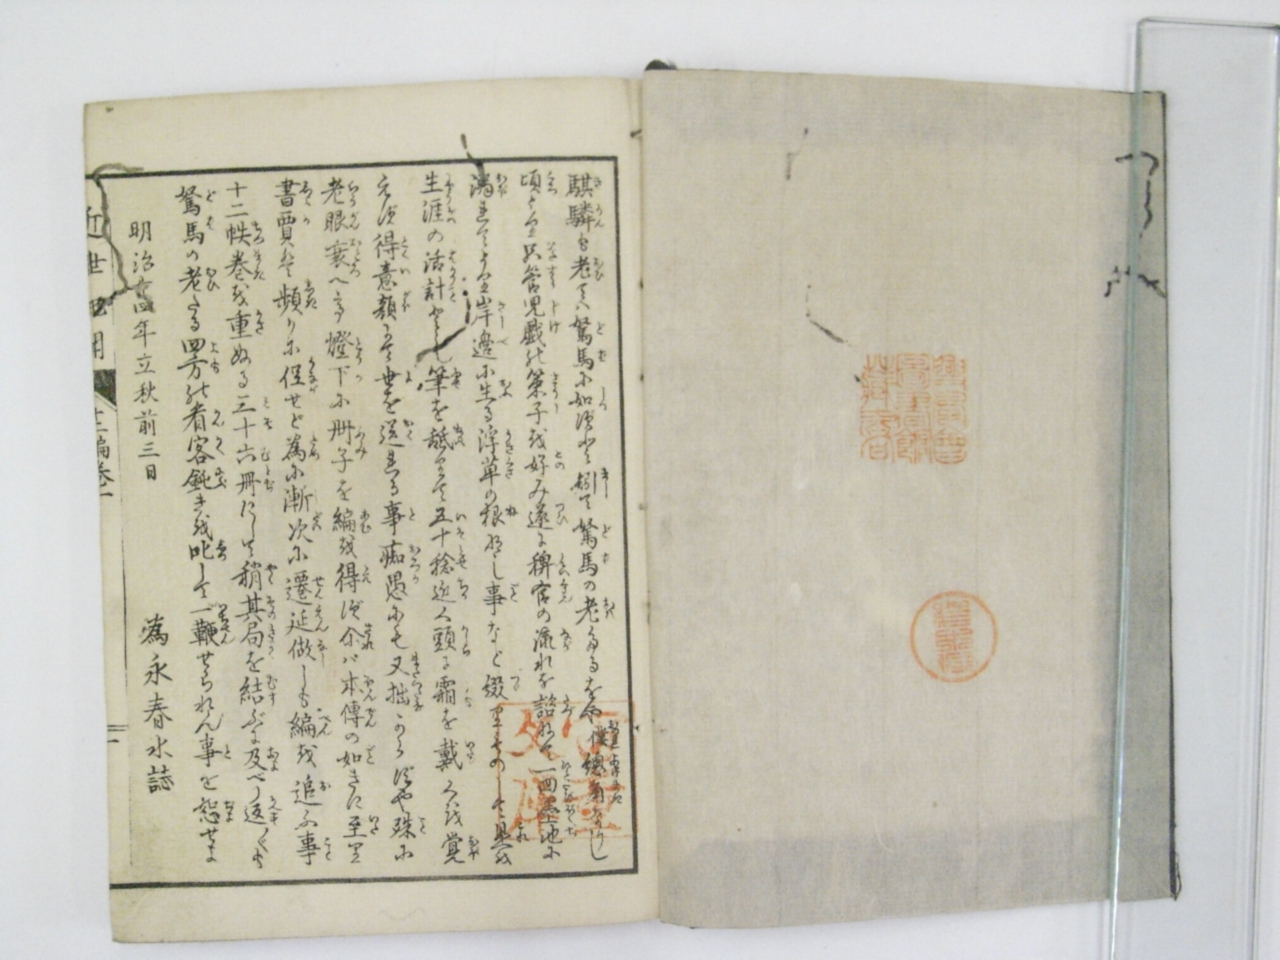 騏驎も老ては駑馬に如ずと況て駑馬の老たるをや僕総角なりし
頃より只管児戯の策子を好み遂に稗官の流れを
岸邉に生る浮草の根なし事など綴り
生涯の活計とし筆を舐りて五十稔近く頭に霜を戴くを覚
えず得意顔に世を送る事痴愚にも又拙からずや殊に
老眼衰へて燈下に冊子を編を得ず余バ本傳の如きに至り
書賈は頻りに促せど為に漸次に遷延做しも編を追ふ事
十二帙巻を重ぬる三十六冊にして稍其局を結ぶに及べり
駑馬の老たる四方の看客鈍きを叱して一鞭せられん事を
明治十四年立秋前三日
為永春水誌
近世
十二編巻一